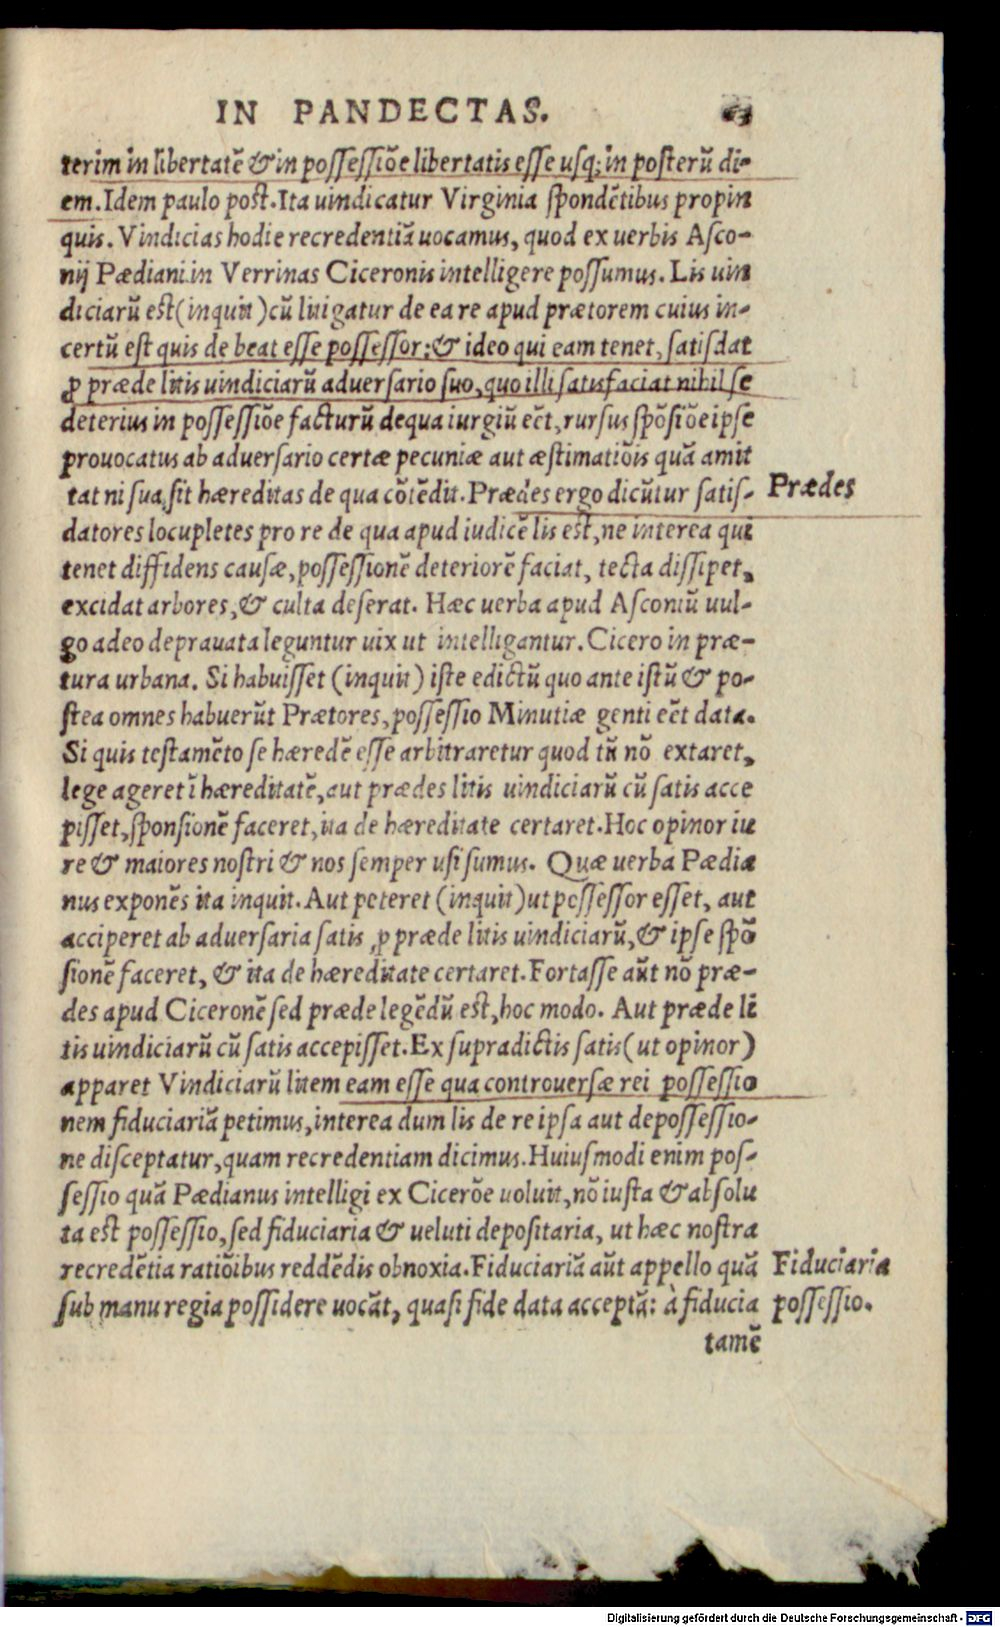 IN PANDECTAS. 63
terim in libertatē & in possessiōe libertatis esse usq; in posterū di-
em. Idem paulo post. Ita uindicatur Virginia spondētibus propin
quis. Vindicias hodie recredentiā uocamus, quod ex uerbis Asco-
nij Pædiani in Verrinas Ciceronis intelligere possumus. Lis uin
diciarū est (inquit) cū litigatur de ea re apud prætorem cuius in-
certū est quis debeat esse possessor: & ideo qui eam tenet, satisdat
ꝓ præde litis uindiciarū aduersario suo, quo illi satisfaciat nihil se
deterius in possessiōe facturū de qua iurgiū eēt, rursus spōsiōe ipse
prouocatus ab aduersario certæ pecuniæ aut æstimatiōis quā amit
tat ni sua sit hæreditas de qua cōtēdit. Prædes ergo dicūtur satis-
Prædes
datores locupletes pro re de qua apud iudicē lis est, ne interea qui
tenet diffidens causæ, possessionē deteriorē faciat, tecta dissipet,
excidat arbores, & culta deserat. Hæc uerba apud Asconiū uul-
go adeo deprauata leguntur uix ut intelligantur. Cicero in præ-
tura urbana. Si habuisset (inquit) iste edictū quo ante istū & po-
stea omnes habuerūt Prætores, possessio Minutiæ genti eēt data.
Si quis testamēto se hæredē esse arbitraretur quod tū nō extaret,
lege ageret ī hæreditatē, aut prædes litis uindiciarū cū satis acce
pisset, sponsionē faceret, ita de hæreditate certaret. Hoc opinor iu
re & maiores nostri & nos semper usi sumus. Quæ uerba Pædia
nus exponēs ita inquit. Aut peteret (inquit) ut possessor esset, aut
acciperet ab aduersaria satis ꝓ præde litis uindiciarū, & ipse spō
sionē faceret, & ita de hæreditate certaret. Fortasse aūt nō præ-
des apud Ciceronē sed præde legēdū est, hoc modo. Aut præde li
tis uindiciarū cū satis accepisset. Ex supradictis satis (ut opinor)
apparet Vindiciarū litem eam esse qua controuersæ rei possessio
nem fiduciariā petimus, interea dum lis de re ipsa aut de possessio-
ne disceptatur, quam recredentiam dicimus. Huiusmodi enim pos-
sessio quā Pædianus intelligi ex Cicerōe uoluit, nō iusta & absolu
ta est possessio, sed fiduciaria & ueluti depositaria, ut hæc nostra
recredētia ratiōibus reddēdis obnoxia. Fiduciariā aūt appello quā
Fiduciaria
sub manu regia possidere uocāt, quasi fide data acceptā: à fiducia
possessio.
tamē
Digitalisierung gefördert durch die Deutsche Forschungsgemeinschaft - DFG